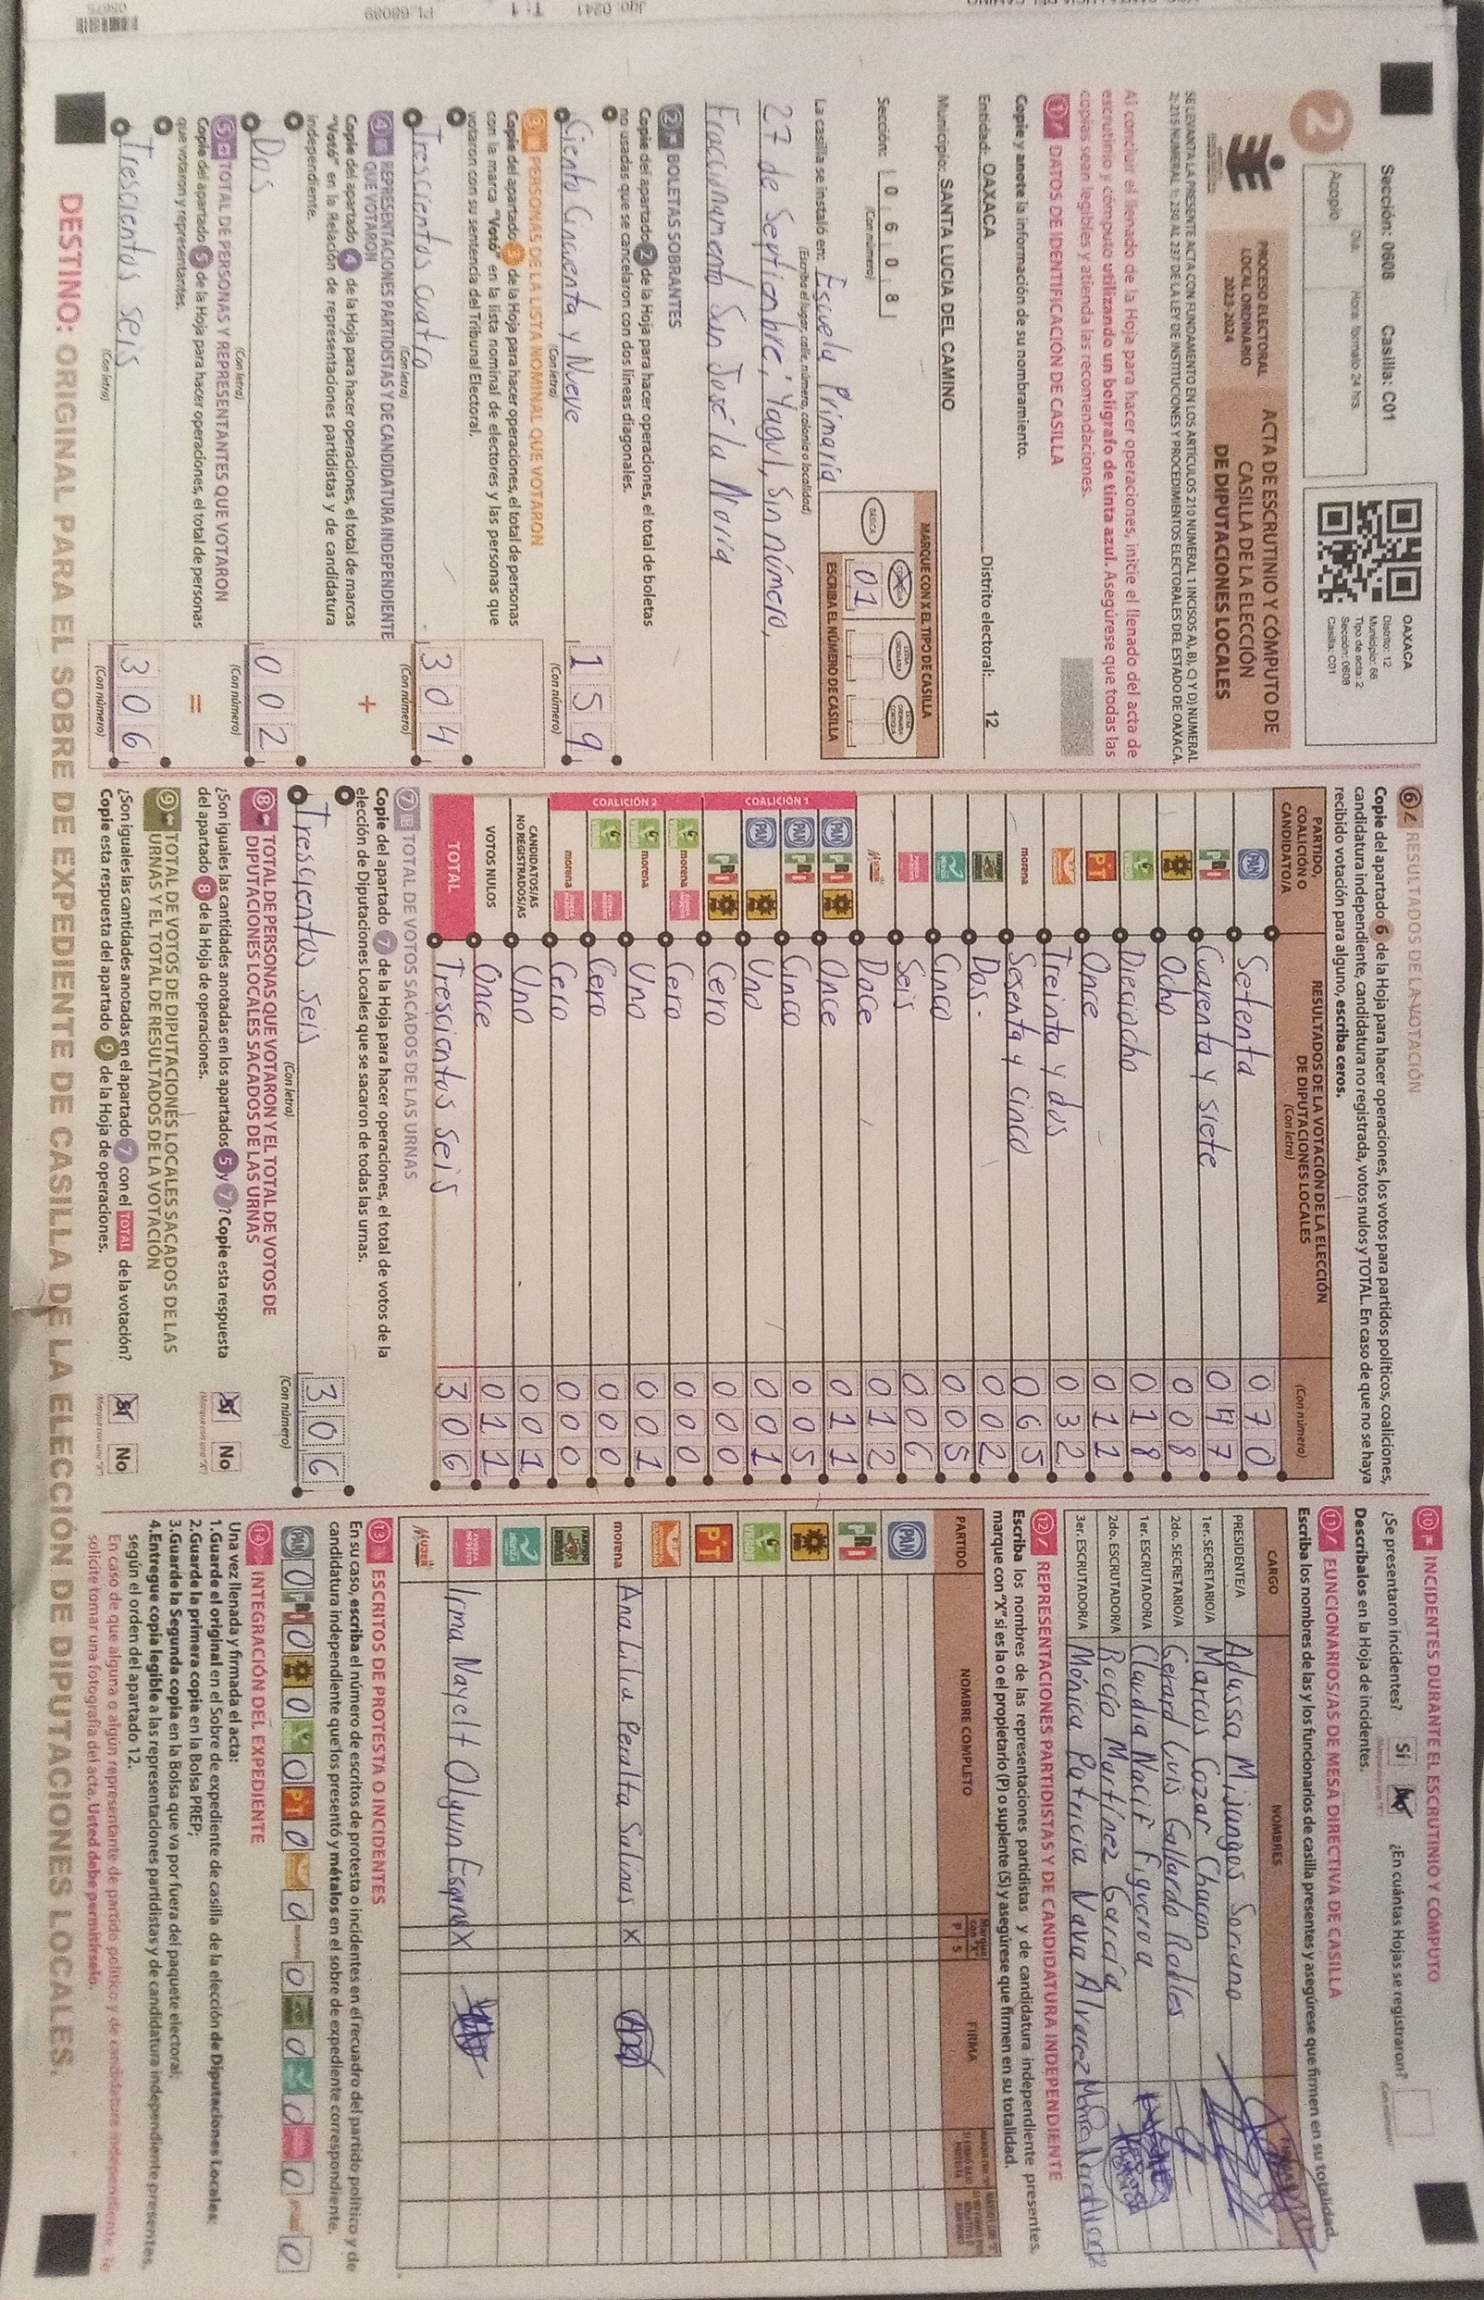 Sección: 0608 Casilla: C01
2
Acopio
Día
Hora: formato 24 hrs.
OAXACA
Distrito: 12
Municipio: 66
Tipo de acta: 2
Sección: 0608
Casilla: C01
PROCESO ELECTORAL
LOCAL ORDINARIO
2023-2024
ACTA DE ESCRUTINIO Y CÓMPUTO DE
CASILLA DE LA ELECCIÓN
DE DIPUTACIONES LOCALES
SE LEVANTA LA PRESENTE ACTA CON FUNDAMENTO EN LOS ARTÍCULOS 210 NUMERAL 1 INCISOS A), B), C) Y D) NUMERAL
2; 215 NUMERAL 1; 230 AL 237 DE LA LEY DE INSTITUCIONES Y PROCEDIMIENTOS ELECTORALES DEL ESTADO DE OAXACA.
Al concluir el llenado de la Hoja para hacer operaciones, inicie el llenado del acta de
escrutinio y cómputo utilizando un bolígrafo de tinta azul. Asegúrese que todas las
copias sean legibles y atienda las recomendaciones.
1 DATOS DE IDENTIFICACIÓN DE CASILLA
Copie y anote la información de su nombramiento.
Entidad: OAXACA Distrito electoral: 12
Municipio: SANTA LUCIA DEL CAMINO
Sección: 0 6 0 8
(Con número)
MARQUE CON X EL TIPO DE CASILLA
BÁSICA
ESCRIBA EL NÚMERO DE CASILLA
01
La casilla se instaló en: Escuela Primaria
(Escriba el lugar, calle, número, colonia o localidad)
27 de Septiembre; Yagul, sin número,
Fraccionamento San José la Noria
2 BOLETAS SOBRANTES
Copie del apartado 2 de la Hoja para hacer operaciones, el total de boletas
no usadas que se cancelaron con dos líneas diagonales.
Ciento Cincuenta y Nueve 159
(Con letra) (Con número)
3 PERSONAS DE LA LISTA NOMINAL QUE VOTARON
Copie del apartado 3 de la Hoja para hacer operaciones, el total de personas
con la marca "Votó" en la lista nominal de electores y las personas que
votaron con su sentencia del Tribunal Electoral.
Trescientos cuatro 304
(Con letra) (Con número)
4 REPRESENTACIONES PARTIDISTAS Y DE CANDIDATURA INDEPENDIENTE
QUE VOTARON
+
Copie del apartado 4 de la Hoja para hacer operaciones, el total de marcas
"Votó" en la Relación de representaciones partidistas y de candidatura
independiente.
Dos 002
(Con letra) (Con número)
5 TOTAL DE PERSONAS Y REPRESENTANTES QUE VOTARON
Copie del apartado 5 de la Hoja para hacer operaciones, el total de personas
que votaron y representantes.
=
Trescientos seis 306
(Con letra) (Con número)
6 RESULTADOS DE LA VOTACIÓN
Copie del apartado 6 de la Hoja para hacer operaciones, los votos para partidos políticos, coaliciones,
candidatura independiente, candidatura no registrada, votos nulos y TOTAL. En caso de que no se haya
recibido votación para alguno, escriba ceros.
PARTIDO,
COALICIÓN O
CANDIDATO/A
RESULTADOS DE LA VOTACIÓN DE LA ELECCIÓN
DE DIPUTACIONES LOCALES
(Con letra)
(Con número)
PAN Setenta 070
PRI Cuarenta y siete 047
Ocho 008
VERDE Dieciocho 018
PT Once 011
Treinta y dos 032
morena Sesenta y cinco 065
Dos. 002
Cinco 005
Seis 006
MUJER Doce 012
COALICIÓN 1
PAN PRI Once 011
PAN PRI Cinco 005
PAN Uno 001
PRI Cero 000
COALICIÓN 2
morena Cero 000
morena Uno 001
Cero 000
morena Cero 000
CANDIDATOS/AS
NO REGISTRADOS/AS Uno 001
VOTOS NULOS Once 011
TOTAL Trescientos seis 306
7 TOTAL DE VOTOS SACADOS DE LAS URNAS
Copie del apartado 7 de la Hoja para hacer operaciones, el total de votos de la
elección de Diputaciones Locales que se sacaron de todas las urnas.
Trescientos seis 306
(Con letra) (Con número)
8 TOTAL DE PERSONAS QUE VOTARON Y EL TOTAL DE VOTOS DE
DIPUTACIONES LOCALES SACADOS DE LAS URNAS
¿Son iguales las cantidades anotadas en los apartados 5 y 7? Copie esta respuesta
del apartado 8 de la Hoja de operaciones.
Sí No
9 TOTAL DE VOTOS DE DIPUTACIONES LOCALES SACADOS DE LAS
URNAS Y EL TOTAL DE RESULTADOS DE LA VOTACIÓN
¿Son iguales las cantidades anotadas en el apartado 7 con el TOTAL de la votación?
Copie esta respuesta del apartado 9 de la Hoja de operaciones.
Sí No
10 INCIDENTES DURANTE EL ESCRUTINIO Y CÓMPUTO
¿Se presentaron incidentes? Sí No ¿En cuántas Hojas se registraron?
Descríbalos en la Hoja de incidentes.
11 FUNCIONARIOS/AS DE MESA DIRECTIVA DE CASILLA
Escriba los nombres de las y los funcionarios de casilla presentes y asegúrese que firmen en su totalidad.
CARGO NOMBRES FIRMAS
PRESIDENTE/A Adussa Mijangos Soriano
1er. SECRETARIO/A Marcos Cozar Chacon
2do. SECRETARIO/A Gerard Luis Gallardo Robles
1er. ESCRUTADOR/A Claudia Nacit Figueroa
2do. ESCRUTADOR/A Rocío Martínez García
3er. ESCRUTADOR/A Mónica Patricia Nava Alvarez
12 REPRESENTACIONES PARTIDISTAS Y DE CANDIDATURA INDEPENDIENTE
Escriba los nombres de las representaciones partidistas y de candidatura independiente presentes,
marque con "X" si es la o el propietario (P) o suplente (S) y asegúrese que firmen en su totalidad.
PARTIDO NOMBRE COMPLETO P S FIRMA
PAN
PRI
VERDE
PT
morena Ana Lilia Peralta Salinas X
Irma Nayelt Olguin Espinos X
MUJER
13 ESCRITOS DE PROTESTA O INCIDENTES
En su caso, escriba el número de escritos de protesta o incidentes en el recuadro del partido político y de
candidatura independiente que los presentó y métalos en el sobre de expediente correspondiente.
PAN 0 PRI 0 0 0 PT 0 0 0 0 0 0 0
14 INTEGRACIÓN DEL EXPEDIENTE
Una vez llenada y firmada el acta:
1.Guarde el original en el Sobre de expediente de casilla de la elección de Diputaciones Locales;
2.Guarde la primera copia en la Bolsa PREP;
3.Guarde la Segunda copia en la Bolsa que va por fuera del paquete electoral;
4.Entregue copia legible a las representaciones partidistas y de candidatura independiente presentes,
según el orden del apartado 12.
En caso de que alguna o algún representante de partido político y de candidatura independiente, le
solicite tomar una fotografía del acta. Usted debe permitírselo.
DESTINO: ORIGINAL PARA EL SOBRE DE EXPEDIENTE DE CASILLA DE LA ELECCIÓN DE DIPUTACIONES LOCALES.